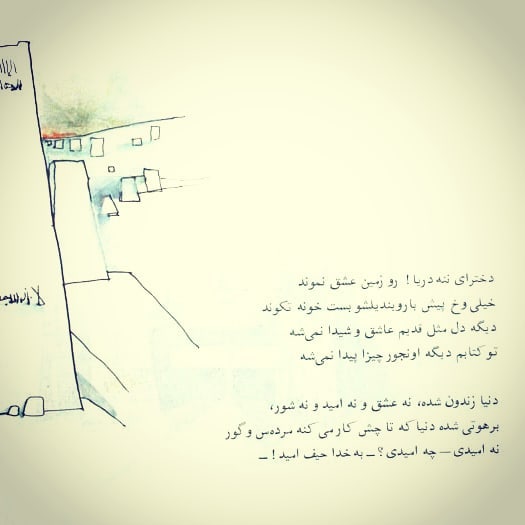 دخترای ننه دریا ! رو زمین عشق نموند
خیلی وخ پیش باروبندیلشو بست خونه تکوند
دیگه دل مثل قدیم عاشق و شیدا نمی‌شه
تو کتابم دیگه اونجور چیزا پیدا نمی‌شه
دنیا زندون شده، نه عشق و نه امید و نه شور،
برهوتی شده دنیا که تا چش کار می‌کنه مرده‌س و گور
نه امیدی — چه امیدی ؟ — به خدا حیف امید ! —